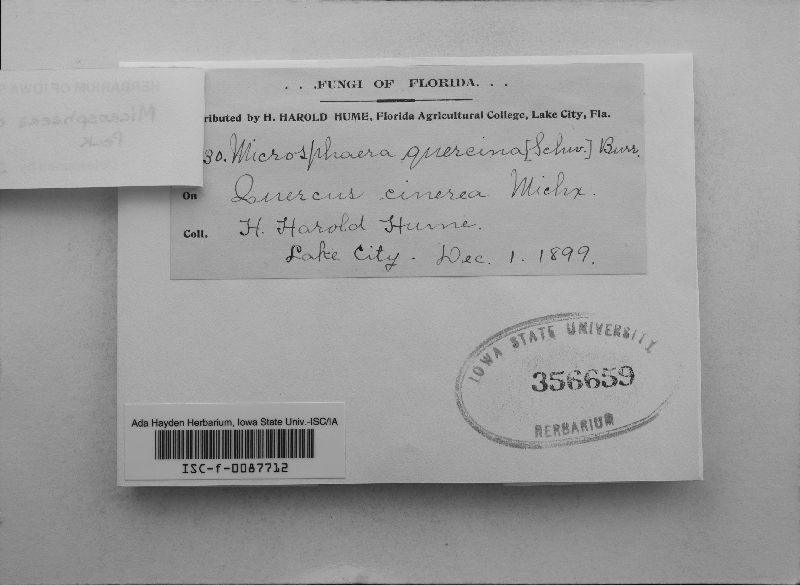 . . .FUNGI OF FLORIDA. . .
ributed by H. HAROLD HUME, Florida Agricultural College, Lake City, Fla.
30. Microsphaera quercina [Schw.] Burr.
On Quercus cinerea Michx.
Coll. H. Harold Hume.
Lake City. Dec. 1. 1899.
IOWA STATE UNIVERSITY
356659
HERBARIUM
Ada Hayden Herbarium, Iowa State Univ.-ISC/IA
ISC-f-0087712